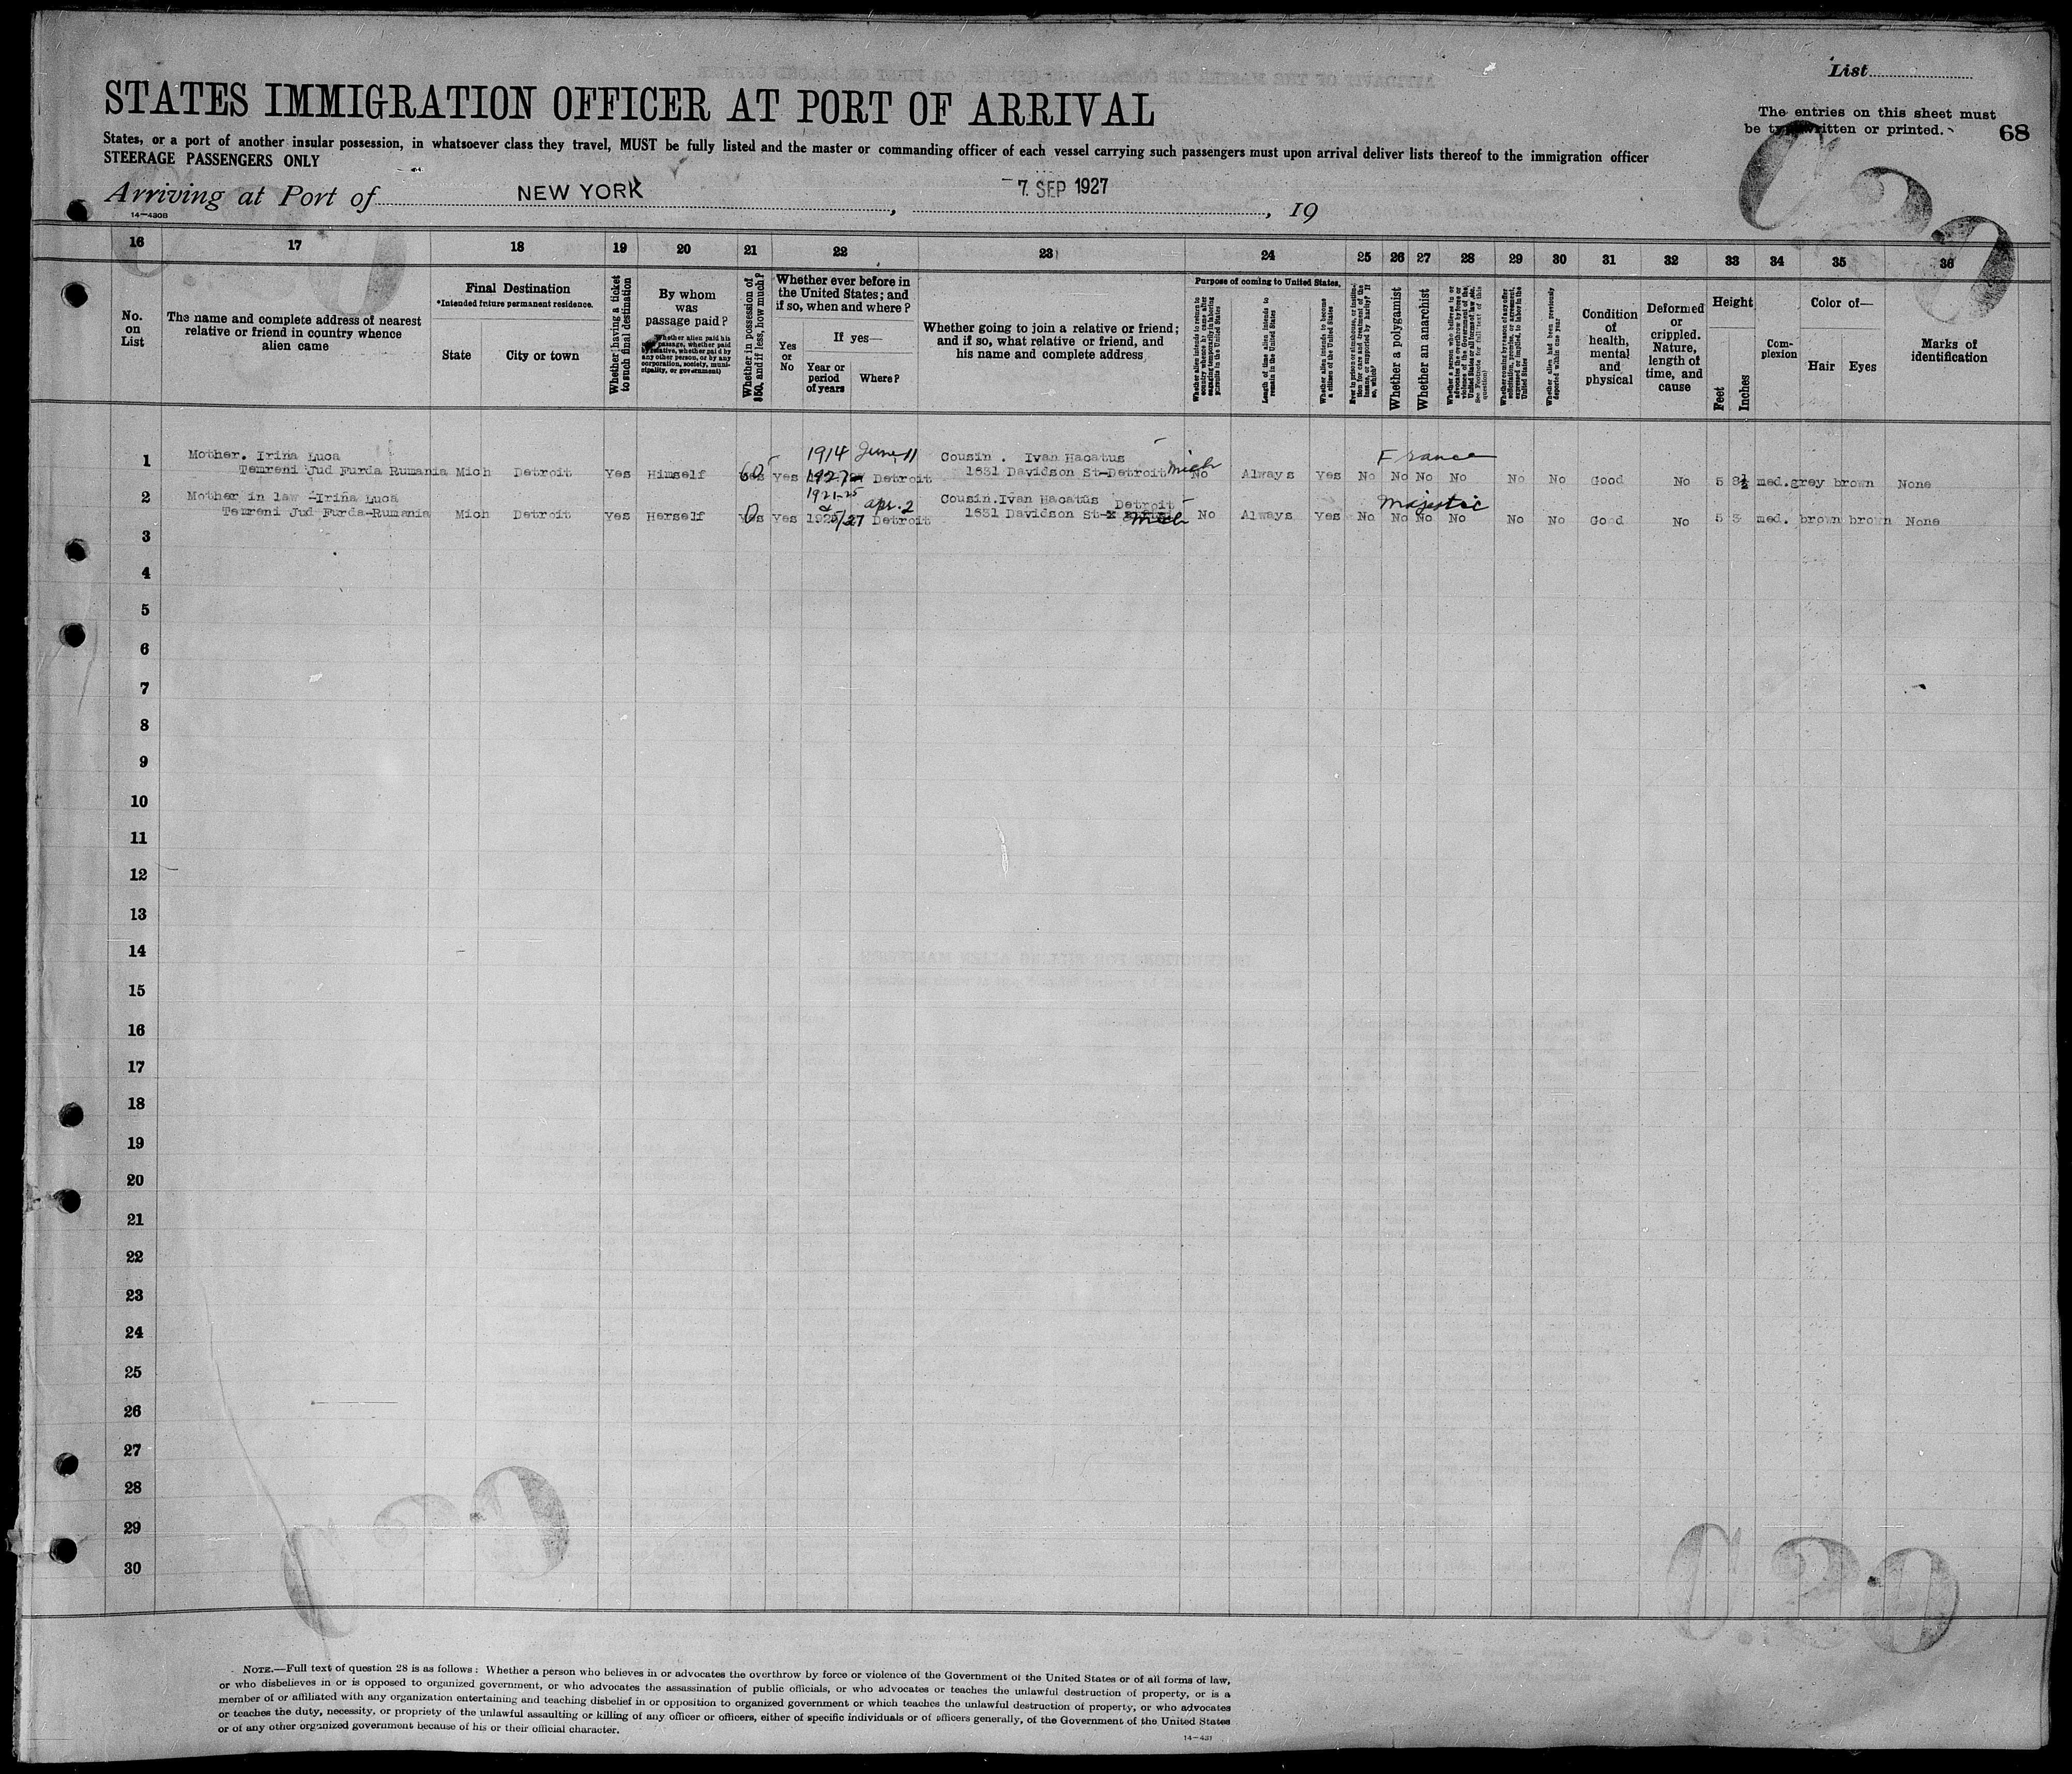 List
STATES IMMIGRATION OFFICER AT PORT OF ARRIVAL
The entries on this sheet must
be typewritten or printed.
68
States, or a port of another insular possession, in whatsoever class they travel, MUST be fully listed and the master or commanding officer of each vessel carrying such passengers must upon arrival deliver lists thereof to the immigration officer
STEERAGE PASSENGERS ONLY
Arriving at Port of NEW YORK, 7 SEP 1927, 19
14-430B
C20
16 17 18 19 20 21 22 23 24 25 26 27 28 29 30 31 32 33 34 35 36
No.
on
List
The name and complete address of nearest
relative or friend in country whence
alien came
Final Destination
*Intended future permanent residence.
State City or town
Whether having a ticket
to such final destination
By whom
was
passage paid?
Whether alien paid his
passage, whether paid
by relative, whether paid by
any other person, or by any
corporation, society, muni-
cipality, or government)
Whether in possession of
$50, and if less, how much?
Whether ever before in
the United States; and
if so, when and where?
Yes
or
No
If yes—
Year or
period
of years
Where?
Whether going to join a relative or friend;
and if so, what relative or friend, and
his name and complete address
Purpose of coming to United States.
Whether alien intends to return to
country whence he came after
engaging temporarily in laboring
pursuits in the United States
Length of time alien intends to
remain in the United States
Whether alien intends to become
a citizen of the United States
Ever in prison or almshouse, or institu-
tion for care and treatment of the
insane, or supported by charity? If
so, which?
Whether a polygamist
Whether an anarchist
Whether a person who believes in or
advocates the overthrow by force or
violence of the Government of the
United States or all forms of law, etc.
(See Footnote for full text of this
question)
Whether coming by reason of any offer,
solicitation, promise, or agreement,
expressed or implied, to labor in the
United States
Whether alien had been previously
deported within one year
Condition
of
health,
mental
and
physical
Deformed
or
crippled.
Nature,
length of
time, and
cause
Height
Feet
Inches
Com-
plexion
Color of—
Hair Eyes
Marks of
identification
1914 June 11
France
1 Mother. Irina Luca Cousin . Ivan Hacatus
Temreni Jud Furda Rumania Mich Detroit Yes Himself 60 Yes 1927 Detroit 1631 Davidson St-Detroit Mich No Always Yes No No No No No No Good No 5 8½ med. grey brown None
1921-25 apr. 2
Majestic
2 Mother in law -Irina Luca Cousin. Ivan Hacatus Detroit
Temreni Jud Furda-Rumania Mich Detroit Yes Herself 0 Yes 27 Detroit 1631 Davidson St- Mich No Always Yes No No No No No No Good No 5 3 med. brown brown None
3
4
5
6
7
8
9
10
11
12
13
14
15
16
17
18
19
20
21
22
23
24
25
26
27
28
29
30
C.20
NOTE.—Full text of question 28 is as follows: Whether a person who believes in or advocates the overthrow by force or violence of the Government of the United States or of all forms of law,
or who disbelieves in or is opposed to organized government, or who advocates the assassination of public officials, or who advocates or teaches the unlawful destruction of property, or is a
member of or affiliated with any organization entertaining and teaching disbelief in or opposition to organized government or which teaches the unlawful destruction of property, or who advocates
or teaches the duty, necessity, or propriety of the unlawful assaulting or killing of any officer or officers, either of specific individuals or of officers generally, of the Government of the United States
or of any other organized government because of his or their official character.
14-431